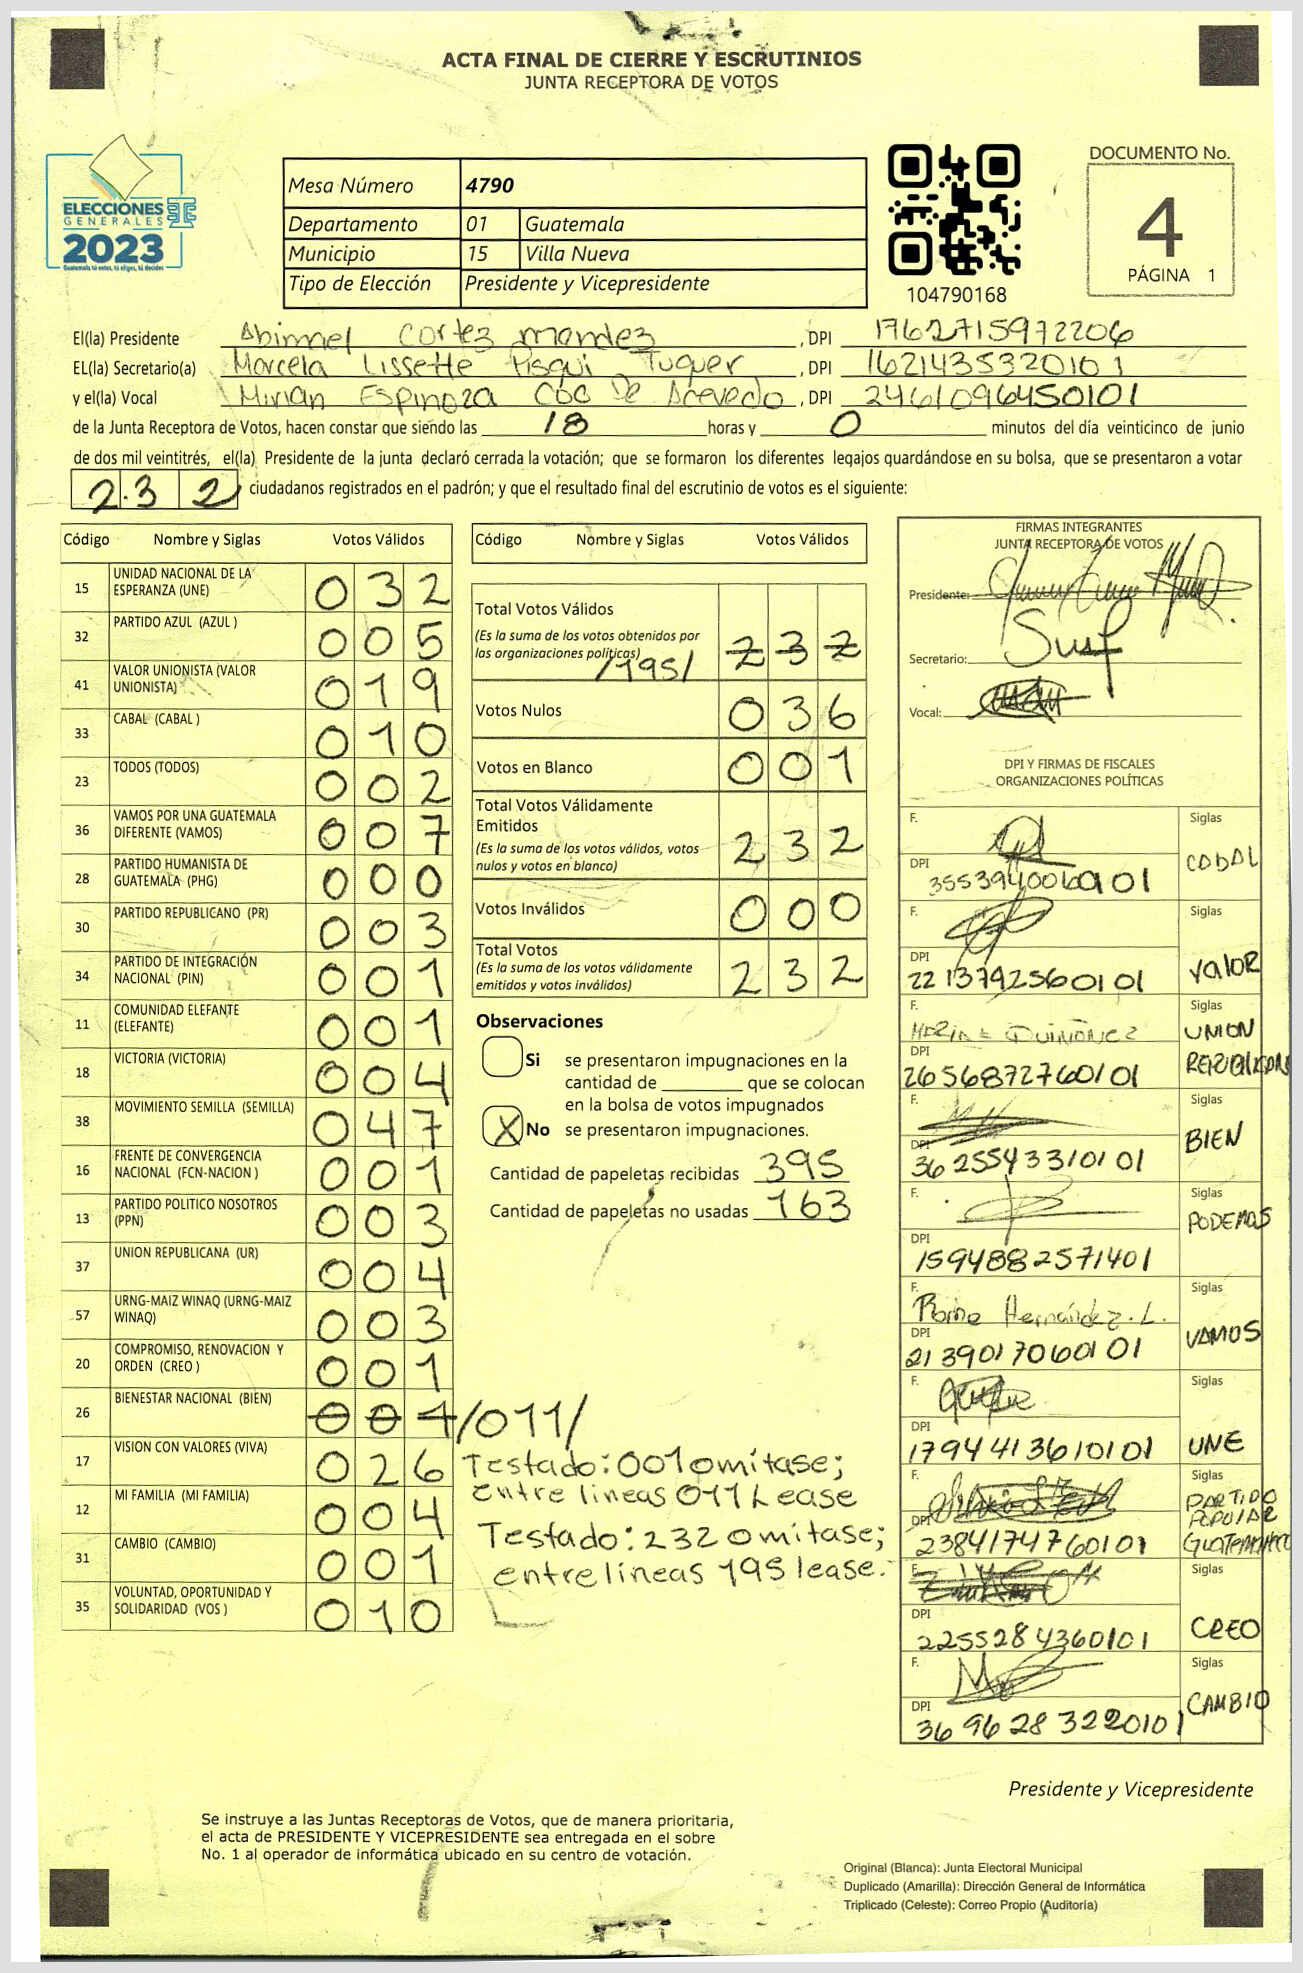 ACTA FINAL DE CIERRE Y ESCRUTINIOS
JUNTA RECEPTORA DE VOTOS
ELECCIONES
GENERALES
2023
Guatemala tú votas, tú eliges, tú decides
Mesa Número 4790
Departamento 01 Guatemala
Municipio 15 Villa Nueva
Tipo de Elección Presidente y Vicepresidente
104790168
DOCUMENTO No.
4
PÁGINA 1
El(la) Presidente Abimael Cortez mendez , DPI 1762715972206
EL(la) Secretario(a) Marcela Lissette Pisqui Tuquer , DPI 1621435320101
y el(la) Vocal Mirian Espinoza Coc De Acevedo , DPI 2461096450101
de la Junta Receptora de Votos, hacen constar que siendo las 18 horas y 0 minutos del día veinticinco de junio
de dos mil veintitrés, el(la) Presidente de la junta declaró cerrada la votación; que se formaron los diferentes legajos guardándose en su bolsa, que se presentaron a votar
232 ciudadanos registrados en el padrón; y que el resultado final del escrutinio de votos es el siguiente:
Código Nombre y Siglas Votos Válidos
15 UNIDAD NACIONAL DE LA ESPERANZA (UNE) 032
32 PARTIDO AZUL (AZUL ) 005
41 VALOR UNIONISTA (VALOR UNIONISTA) 019
33 CABAL (CABAL ) 010
23 TODOS (TODOS) 002
36 VAMOS POR UNA GUATEMALA DIFERENTE (VAMOS) 007
28 PARTIDO HUMANISTA DE GUATEMALA (PHG) 000
30 PARTIDO REPUBLICANO (PR) 003
34 PARTIDO DE INTEGRACIÓN NACIONAL (PIN) 001
11 COMUNIDAD ELEFANTE (ELEFANTE) 001
18 VICTORIA (VICTORIA) 004
38 MOVIMIENTO SEMILLA (SEMILLA) 047
16 FRENTE DE CONVERGENCIA NACIONAL (FCN-NACION ) 001
13 PARTIDO POLITICO NOSOTROS (PPN) 003
37 UNION REPUBLICANA (UR) 004
57 URNG-MAIZ WINAQ (URNG-MAIZ WINAQ) 003
20 COMPROMISO, RENOVACION Y ORDEN (CREO ) 001
26 BIENESTAR NACIONAL (BIEN) 001 /011/
17 VISION CON VALORES (VIVA) 026
12 MI FAMILIA (MI FAMILIA) 004
31 CAMBIO (CAMBIO) 001
35 VOLUNTAD, OPORTUNIDAD Y SOLIDARIDAD (VOS ) 010
Código Nombre y Siglas Votos Válidos
Total Votos Válidos
(Es la suma de los votos obtenidos por
las organizaciones políticas) /195/ 232
Votos Nulos 036
Votos en Blanco 001
Total Votos Válidamente
Emitidos
(Es la suma de los votos válidos, votos
nulos y votos en blanco) 232
Votos Inválidos 000
Total Votos
(Es la suma de los votos válidamente
emitidos y votos inválidos) 232
Observaciones
Si se presentaron impugnaciones en la
cantidad de ________ que se colocan
en la bolsa de votos impugnados
X No se presentaron impugnaciones.
Cantidad de papeletas recibidas 395
Cantidad de papeletas no usadas 163
Testado: 001 omitase;
Entre lineas 011 Lease
Testado: 232 omitase;
entre líneas 195 lease.
FIRMAS INTEGRANTES
JUNTA RECEPTORA DE VOTOS
Presidente:
Secretario:
Vocal:
DPI Y FIRMAS DE FISCALES
ORGANIZACIONES POLÍTICAS
F. Siglas
DPI CABAL
F. Siglas
DPI 2213792560101 VALOR
F. Siglas
DPI UNION
2656872760101 REPUBLICANA
F. Siglas
DPI 3625543310101 BIEN
F. Siglas
DPI PODEMOS
1594882571401
F. Siglas
Hernández. L.
DPI 2139017060101 VAMOS
F. Siglas
DPI 1794413610101 UNE
F. Siglas
DPI PARTIDO
POPULAR
2384174760101
F. Siglas
DPI 2255284360101 CREO
F. Siglas
DPI 3696283220101 CAMBIO
Presidente y Vicepresidente
Se instruye a las Juntas Receptoras de Votos, que de manera prioritaria,
el acta de PRESIDENTE Y VICEPRESIDENTE sea entregada en el sobre
No. 1 al operador de informática ubicado en su centro de votación.
Original (Blanca): Junta Electoral Municipal
Duplicado (Amarilla): Dirección General de Informática
Triplicado (Celeste): Correo Propio (Auditoría)